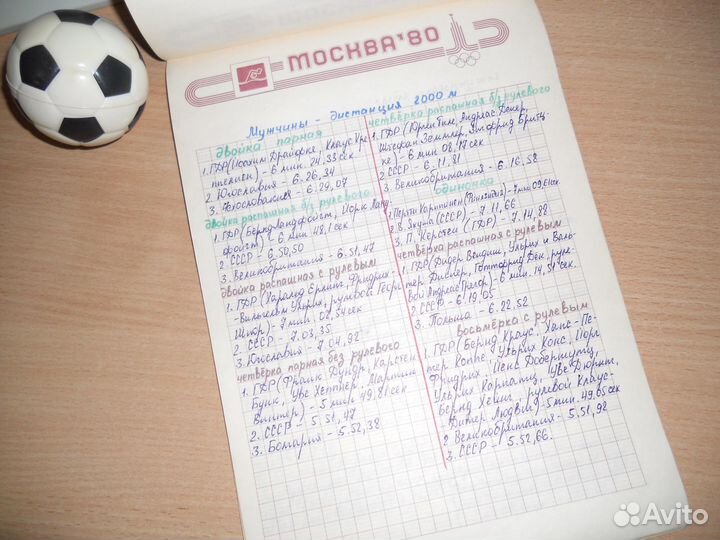 МОСКВА'80
Мужчины - дистанция 2000 м
двойка парная
1. ГДР (Иоахим Драйфке, Клаус Крё-
ппелиен) - 6 мин. 24,33 сек
2. Югославия - 6.26,34
3. Чехословакия - 6.29,07
двойка распашная б/ рулевого
1. ГДР (Бернд Ландфойгт, Йорг Ланд-
фойгт) - 6 мин 48,1 сек
2. СССР - 6.50,50
3. Великобритания - 6.51,47
двойка распашная с рулевым
1. ГДР (Харальд Ерлинг, Фридрих-
Вильгельм Ульрих, рулевой Георг
Шпор) - 7 мин. 02,54 сек
2. СССР - 7.03,35
3. Югославия - 7.04,92
четвёрка парная без рулевого
1. ГДР (Франк Дундр, Карстен
Бунк, Уве Хеппнер, Мартин
Винтер) - 5 мин 49,81 сек
2. СССР - 5.51,47
3. Болгария - 5.52,38
четвёрка распашная б/ рулевого
1. ГДР (Юрген Тиле, Андреас Декер,
Штефан Земмлер, Зигфрид Брицке)
- 6 мин 08,17 сек
2. СССР - 6.11,81
3. Великобритания - 6.16,58
одиночка
1. Пертти Карппинен (Финляндия) - 7 мин 09,61 сек
2. В. Якуша (СССР) - 7.11,66
3. П. Керстен (ГДР) - 7.14,88
четвёрка распашная с рулевым
1. ГДР (Дитер Вендиш, Ульрих и Валь-
тер Дислер, Готтфрид Дён, руле-
вой Андреас Грегор) - 6 мин. 14,51 сек.
2. СССР - 6.19,05
3. Польша - 6.22,52
восьмёрка с рулевым
1. ГДР (Бернд Краус, Ханс-Пе-
тер Коппе, Ульрих Конс, Йорг
Фридрих, Йенс Добершютц,
Ульрих Карнатц, Уве Дюринг,
Бернд Хеинг, рулевой Клаус-
Дитер Людвиг) - 5 мин. 49,05 сек
2. Великобритания - 5.51,92
3. СССР - 5.52,66.
Avito